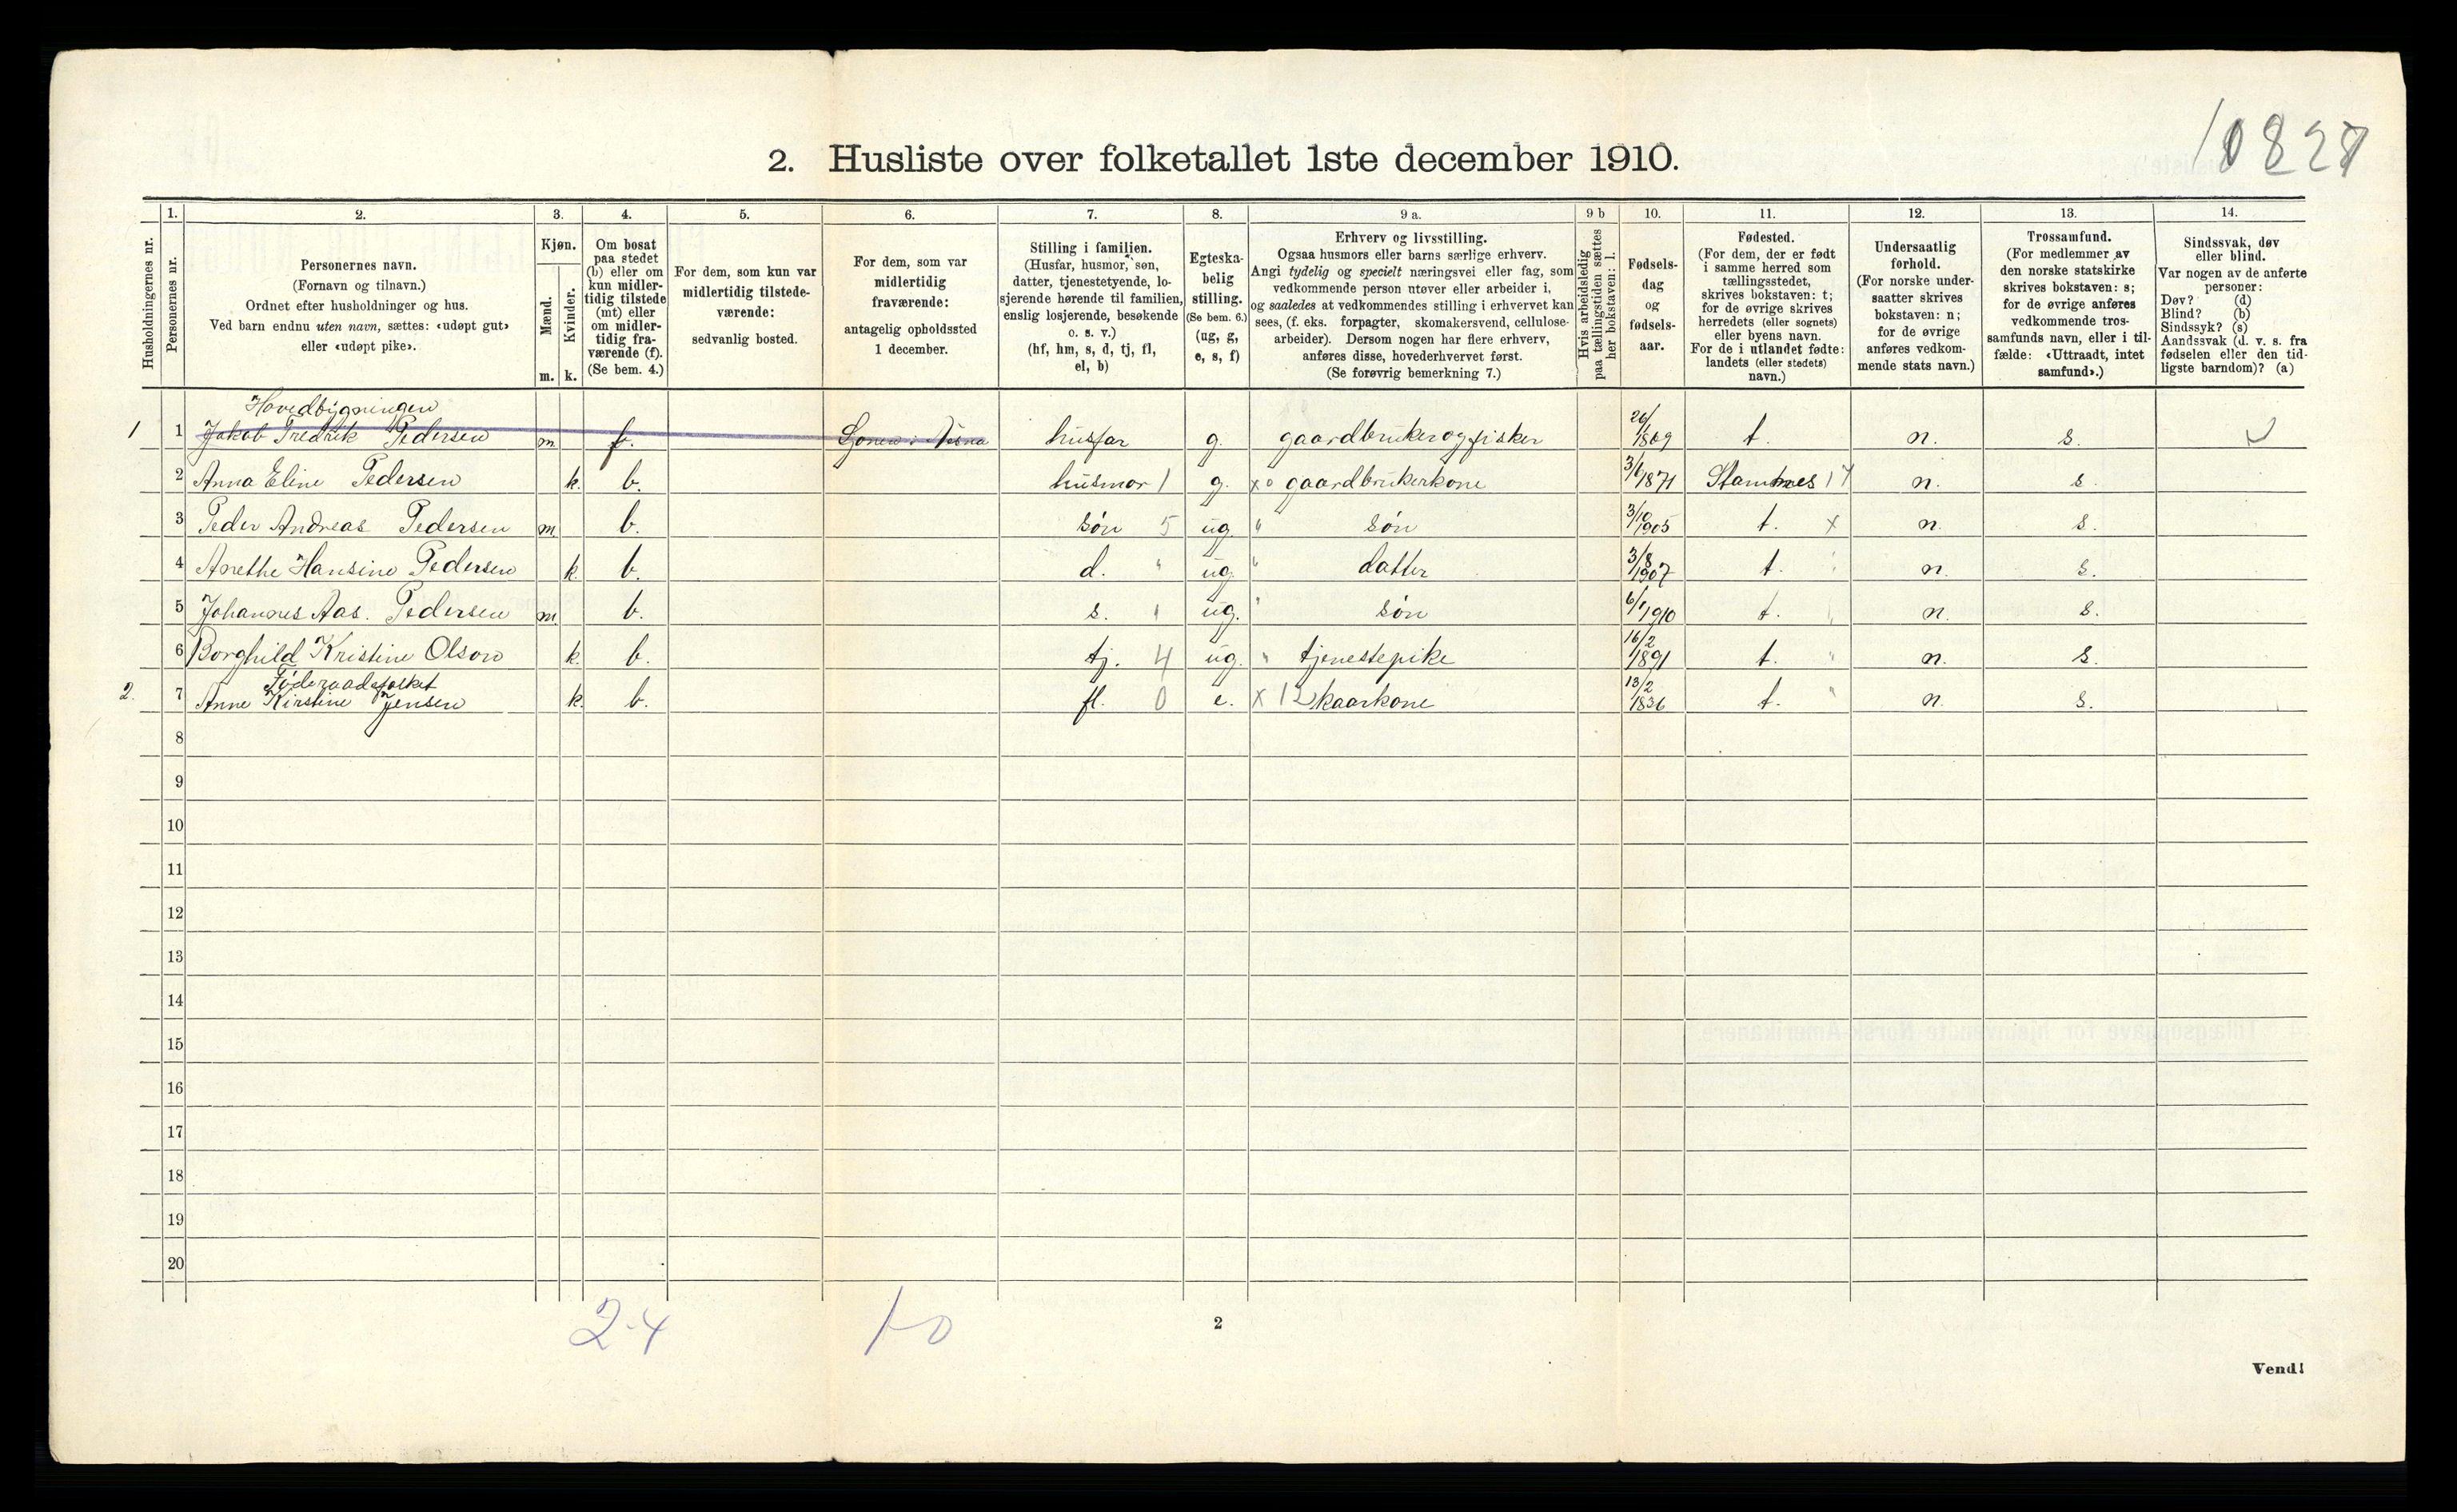 10827
2. Husliste over folketallet 1ste december 1910.
Husholdningernes nr.
1.
Personernes nr.
2.
Personernes navn.
(Fornavn og tilnavn.)
Ordnet efter husholdninger og hus.
Ved barn endnu uten navn, sættes: «udøpt gut»
eller «udøpt pike».
3.
Kjøn.
Mænd.
Kvinder.
m. k.
4.
Om bosat
paa stedet
(b) eller om
kun midler-
tidig tilstede
(mt) eller
om midler-
tidig fra-
værende (f).
(Se bem. 4.)
5.
For dem, som kun var
midlertidig tilstede-
værende:
sedvanlig bosted.
6.
For dem, som var
midlertidig
fraværende:
antagelig opholdssted
1 december.
7.
Stilling i familien.
(Husfar, husmor, søn,
datter, tjenestetyende, lo-
sjerende hørende til familien,
enslig losjerende, besøkende
o. s. v.)
(hf, hm, s, d, tj, fl,
el, b)
8.
Egteska-
belig
stilling.
(Se bem. 6.)
(ug, g,
e, s, f)
9 a.
Erhverv og livsstilling.
Ogsaa husmors eller barns særlige erhverv.
Angi tydelig og specielt næringsvei eller fag, som
vedkommende person utøver eller arbeider i,
og saaledes at vedkommendes stilling i erhvervet kan
sees, (f. eks. forpagter, skomakersvend, cellulose-
arbeider). Dersom nogen har flere erhverv,
anføres disse, hovederhvervet først.
(Se forøvrig bemerkning 7.)
9 b
Hvis arbeidsledig
paa tællingstiden sættes
her bokstaven: l.
10.
Fødsels-
dag
og
fødsels-
aar.
11.
Fødested.
(For dem, der er født
i samme herred som
tællingsstedet,
skrives bokstaven: t;
for de øvrige skrives
herredets (eller sognets)
eller byens navn.
For de i utlandet fødte:
landets (eller stedets)
navn.)
12.
Undersaatlig
forhold.
(For norske under-
saatter skrives
bokstaven: n;
for de øvrige
anføres vedkom-
mende stats navn.)
13.
Trossamfund.
(For medlemmer av
den norske statskirke
skrives bokstaven: s;
for de øvrige anføres
vedkommende tros-
samfunds navn, eller i til-
fælde: «Uttraadt, intet
samfund».)
14.
Sindssvak, døv
eller blind.
Var nogen av de anførte
personer:
Døv? (d)
Blind? (b)
Sindssyk? (s)
Aandssvak (d. v. s. fra
fødselen eller den tid-
ligste barndom)? (a)
Hovedbygningen
1 1 Jakob Fredrik Pedersen m. f. husfar g. gaardbruker og fisker 1869 t. n. s.
2 Anna Eline Pedersen k. b. husmor 1 g. x o gaardbrukerkone 3/6 1871 Stamnes 17 n. s.
3 Peder Andreas Pedersen m. b. søn 5 ug. " søn 3/10 1905 t. x n. s.
4 Anethe Hansine Pedersen k. b. d. " ug. " datter 3/8 1907 t. " n. s.
5 Johannes Aas. Pedersen m. b. s. " ug. " søn 6/1 1910 t. " n. s.
6 Borghild Kristine Olsen k. b. tj. 4 ug. " tjenestepike 16/2 1891 t. " n. s.
Föderaadsfolket
2. 7 Anne Kirstine Jensen k. b. fl. 0 e. x 12 kaarkone 13/2 1836 t. " n. s.
8
9
10
11
12
13
14
15
16
17
18
19
20
2-4 1-0
2
Vend!